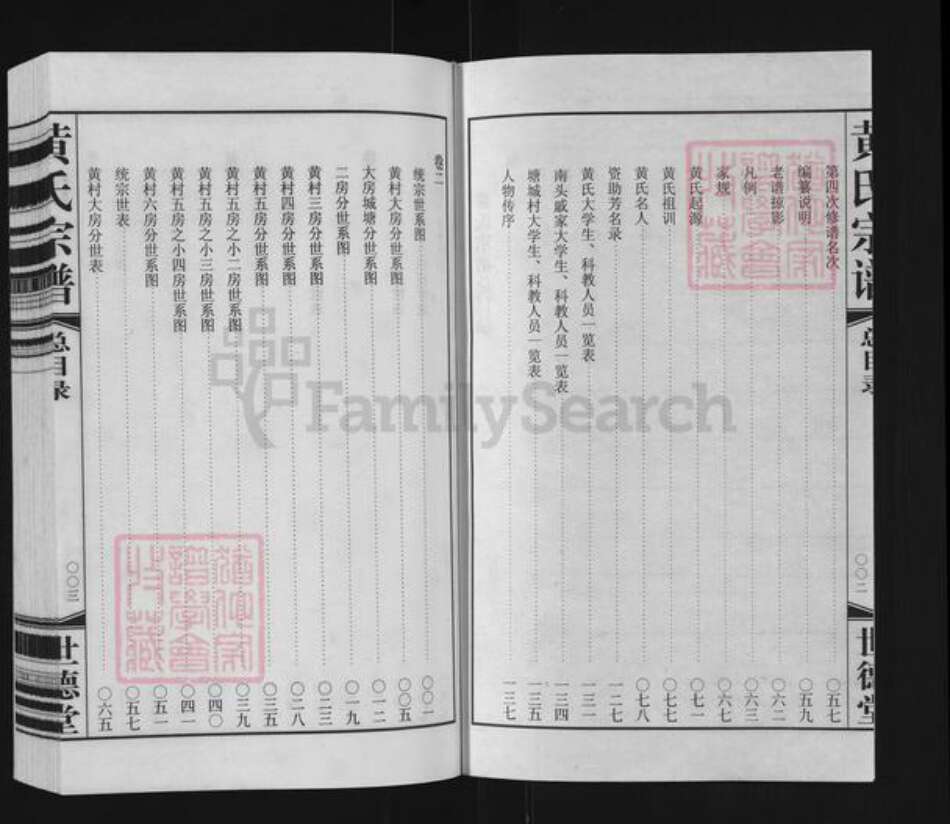 黄氏宗谱
总目录
〇〇二
世德堂
第四次修谱名次 〇五七
编纂说明 〇五九
老谱掠影 〇六二
凡例 〇六三
家规 〇六七
黄氏起源 〇七一
黄氏祖训 〇七七
黄氏名人 〇七八
资助芳名录 一二七
黄氏大学生、科教人员一览表 一三一
南头戚家大学生、科教人员一览表 一三四
塘城村大学生、科教人员一览表 一三五
人物传序 一三七
卷二
统宗世系图 〇〇一
黄村大房分世系图 〇〇五
大房城塘分世系图 〇一二
二房分世系图 〇一九
黄村三房分世系图 〇二三
黄村四房分世系图 〇二八
黄村五房分世系图 〇三五
黄村五房之小二房世系图 〇三九
黄村五房之小三房世系图 〇四〇
黄村五房之小四房世系图 〇四一
黄村六房分世系图 〇五一
统宗世表 〇五七
黄村大房分世表 〇六五
黄氏宗谱
总目录
〇〇三
世德堂
FamilySearch